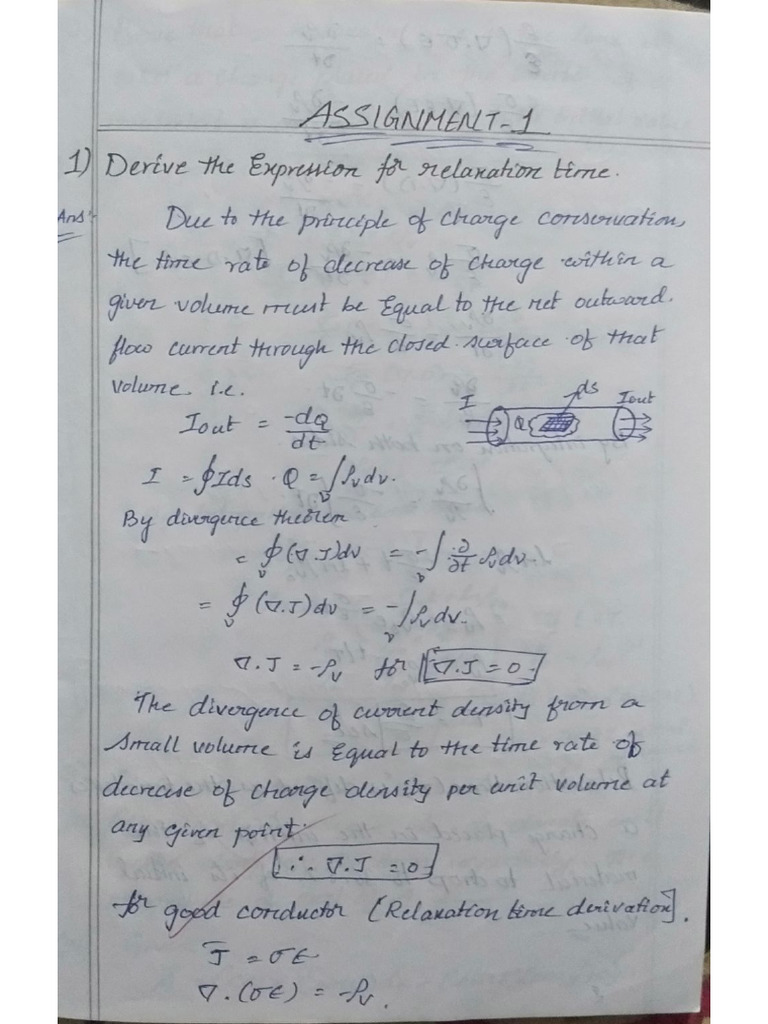 ASSIGNMENT-1
1) Derive the Expression for relaxation time.
Ans:- Due to the principle of charge conservation,
the time rate of decrease of charge within a
given volume must be Equal to the net outward.
flow current through the closed surface of that
volume. i.e.
Iout = -dQ/dt
I Q ds Iout
I = ∮Ids . Q = ∫ᵥ ρᵥdv.
By divergence theorem
= ∮ᵥ (∇.J)dv = -∫ᵥ ∂/∂t ρᵥdv.
= ∮ᵥ (∇.J)dv = -∫ᵥ ρᵥdv.
∇.J = -ρᵥ for ∇.J = 0
The divergence of current density from a
small volume is Equal to the time rate of
decrease of charge density per unit volume at
any given point.
∴ ∇.J = 0
for good conductor [Relaxation time derivation].
J̄ = σE
∇.(σE) = -ρᵥ.